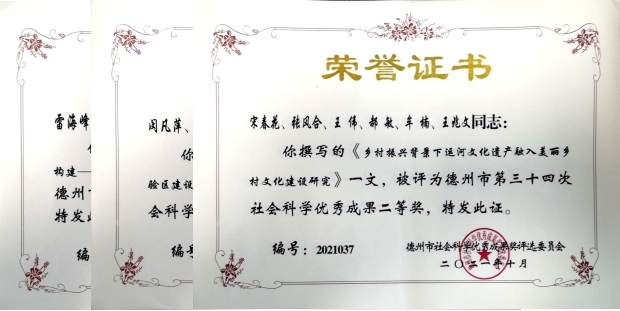 雷海峰
构建——
德州市
特发此
编
闵凡萍、
你
验区建设
会科学
编
荣誉证书
宋春花、张凤合、王 伟、郝 敏、车 楠、王兆文同志：
你撰写的《乡村振兴背景下运河文化遗产融入美丽乡
村文化建设研究》一文，被评为德州市第三十四次
社会科学优秀成果二等奖，特发此证。
编号：2021037
德州市社会科学优秀成果奖评选委员会
二〇二一年十月